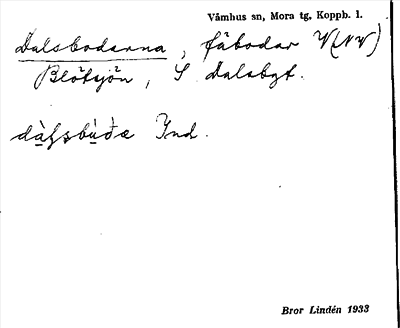 Våmhus sn, Mora tg, Koppb. l.
Dalsbodarna, fäbodar V(NV)
Blötsjön, S Dalsbgt.
Ind.
Bror Lindén 1933